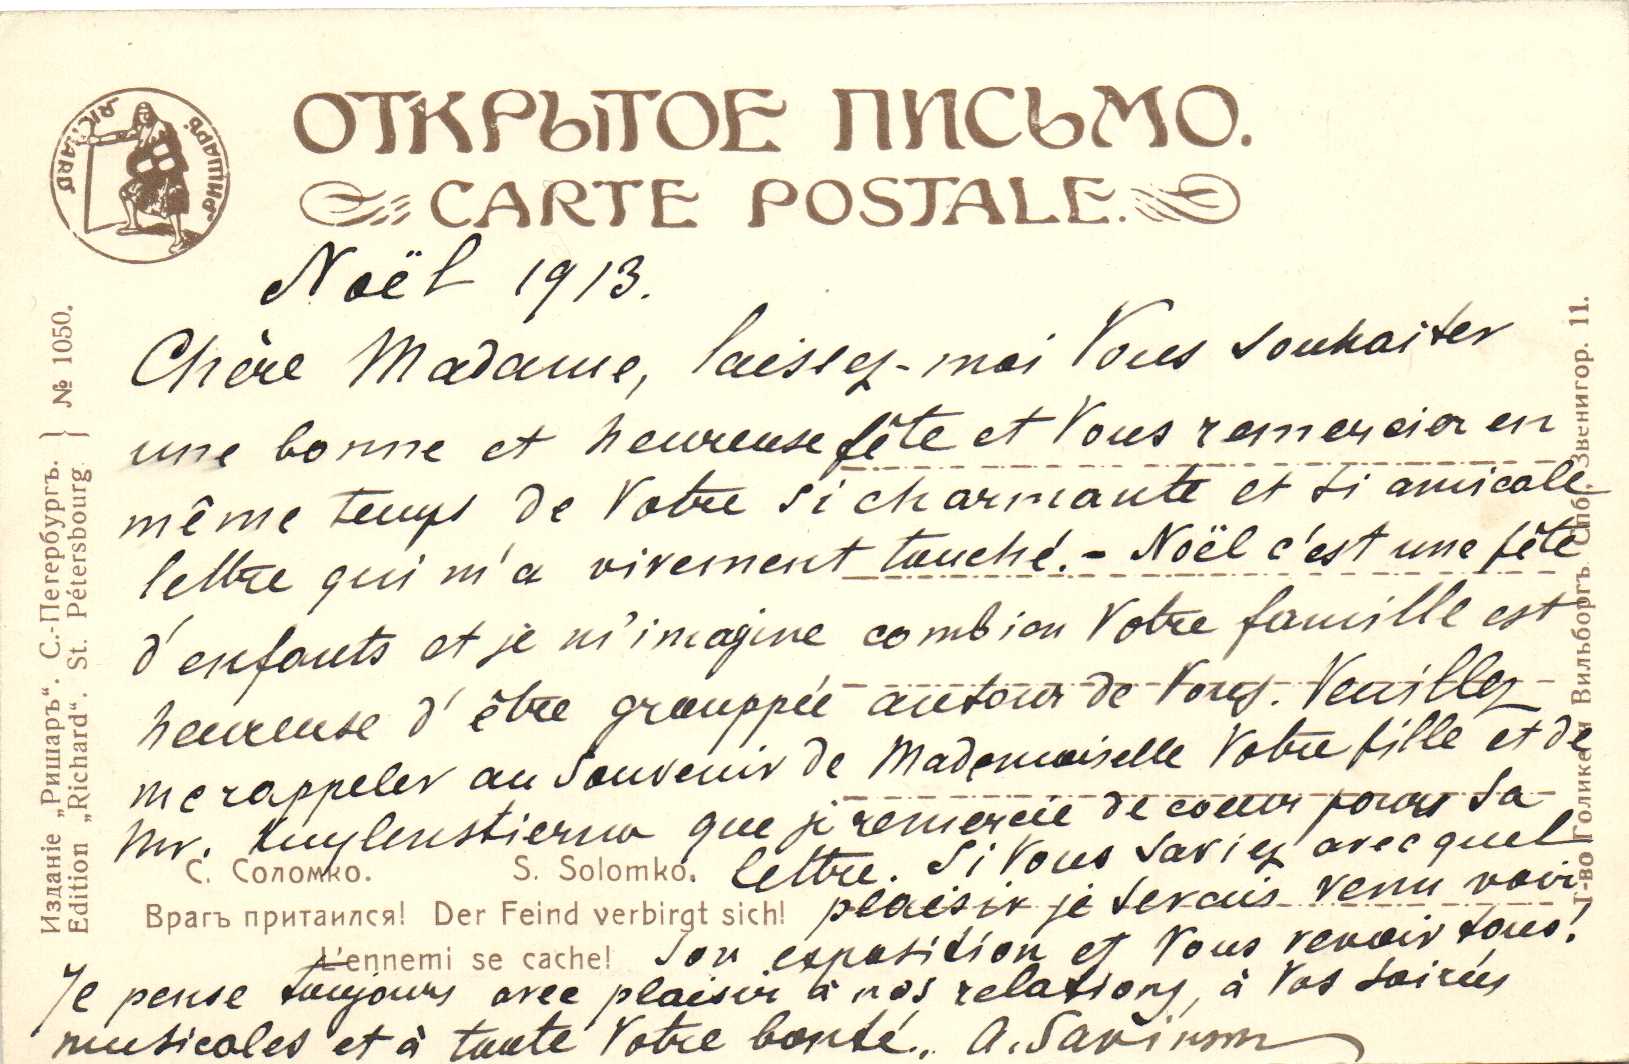 RICHARD
РИШАРЪ.
ОТКРЫТОЕ ПИСЬМО.
CARTE POSTALE.
Noël 1913.
Chère Madame, laissez-moi Vous souhaiter
une bonne et heureuse fête et Vous remercier en
même temps de Votre si charmante et si amicale
lettre qui m'a vivement touché. - Noël c'est une fête
d'enfants et je m'imagine combien Votre famille est
heureuse d'être grouppée autour de Vous. Veuillez
me rappeler au souvenir de Mademoiselle Votre fille et de
Mr. Kuylenstierna que je remercie de coeur pour sa
lettre. Si Vous saviez avec quel
plaisir je serais venu voir
son exposition et Vous revoir tous!
Je pense toujours avec plaisir à nos relations, à Vos soirées
musicales et à toute Votre bonté.
С. Соломко. S. Solomko.
Врагъ притаился! Der Feind verbirgt sich!
L'ennemi se cache!
Изданіе „Ришаръ“. С.-Петербургъ.
Edition „Richard“. St. Pétersbourg
№ 1050.
Т-во Голике и Вильборгъ. Спб. Звенигор. 11.